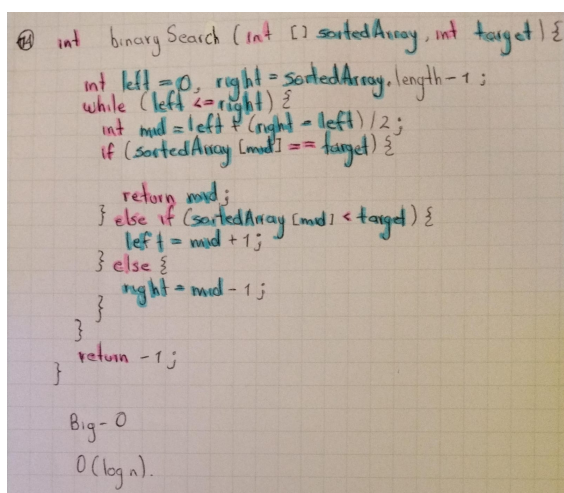 int binarySearch (int [] sortedArray, int target) {
int left = 0, right = sortedArray.length - 1 ;
while (left <= right) {
int mid = left + (right - left) / 2 ;
if (sortedArray [mid] == target) {
return mid ;
} else if (sortedArray [mid] < target) {
left = mid + 1 ;
} else {
right = mid - 1 ;
}
}
return -1 ;
}
Big-O
O(log n).